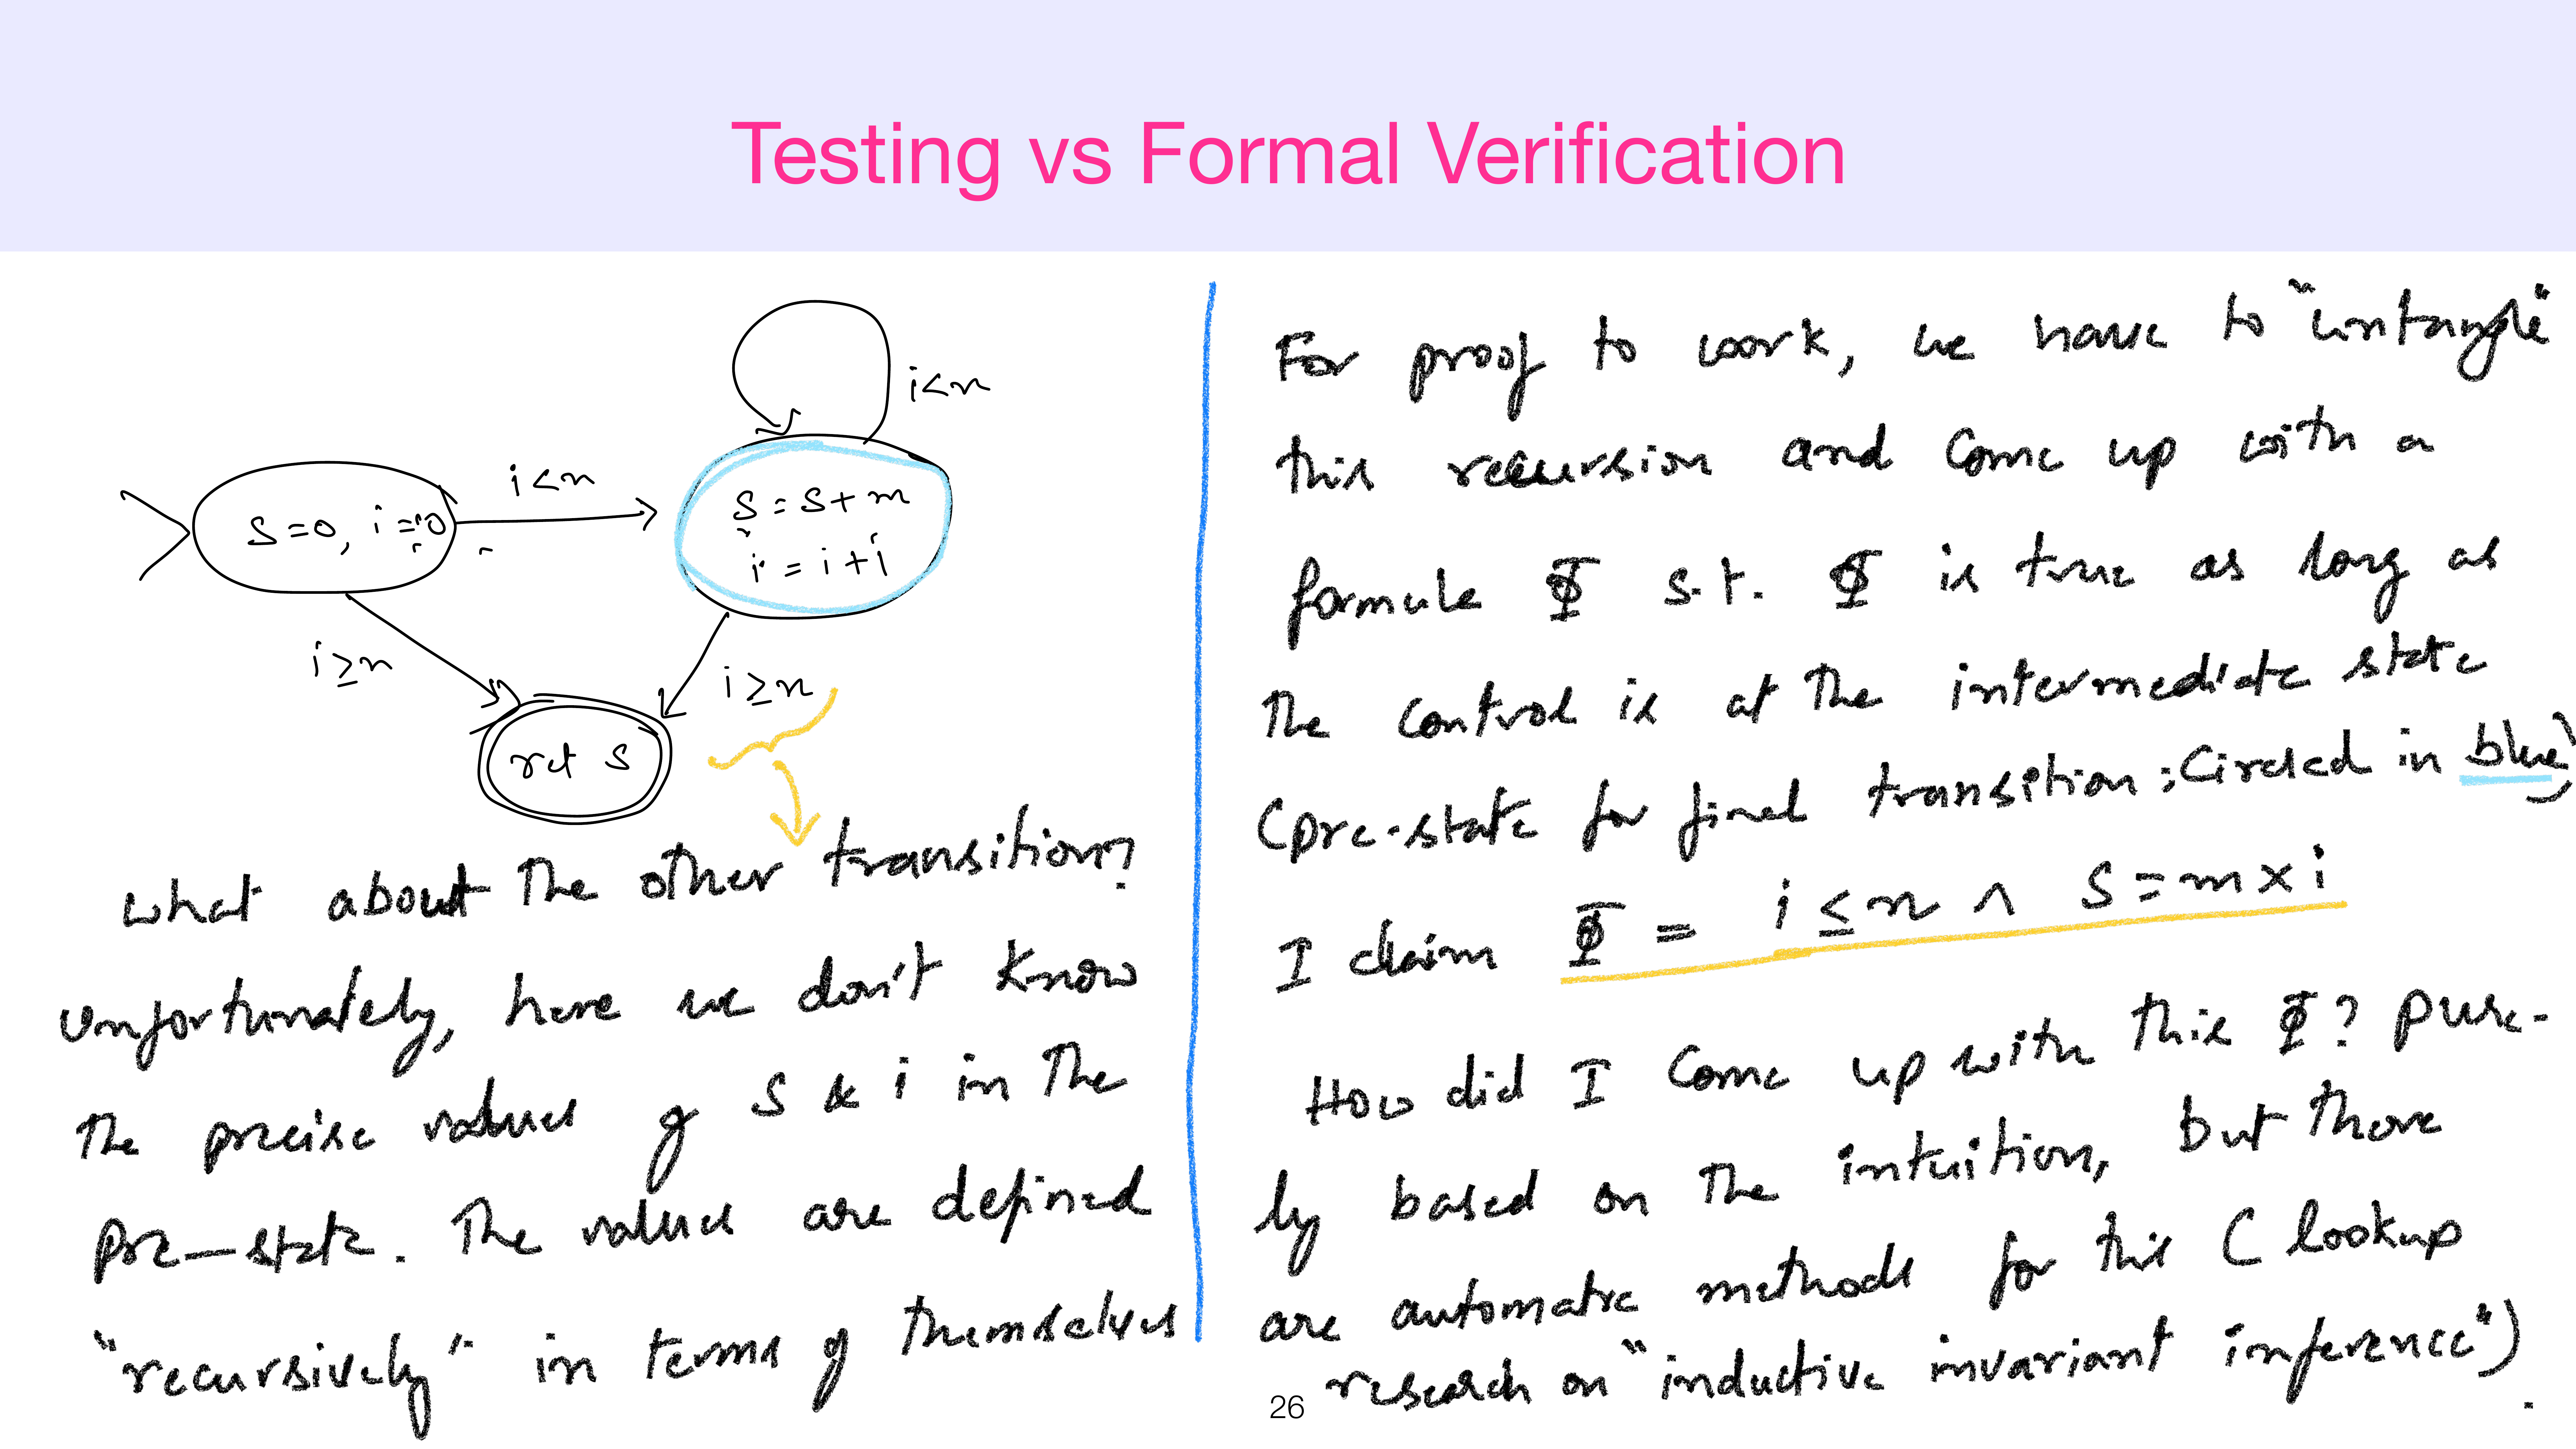 Testing vs Formal Verification
i<n
i<n
S=0, i=0
S = S+m
i = i+1
i≥n
i≥n
ret S
What about the other transition?
Unfortunately, here we don't know
the precise values of S & i in the
pre-state. The values are defined
"recursively" in terms of themselves
For proof to work, we have to "untangle"
this recursion and come up with a
formule Φ s.t. Φ is true as long as
the control is at the intermediate state
(pre-state for final transition; circled in blue)
I claim Φ = i ≤ n ∧ S = m × i
How did I come up with this Φ? Pure-
ly based on the intuition, but there
are automatic methods for this (lookup
research on "inductive invariant inference").
26